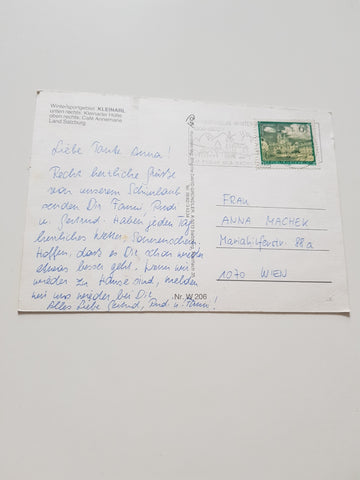 Wintersportgebiet KLEINARL
unten rechts: Kleinarler Hütte
oben rechts: Café Annemarie
Land Salzburg
Liebe Tante Anna!
Recht herzliche Grüße
von unserem Schiurlaub
senden Dir Fanni, Rudi
u. Gertrud. Haben jeden Tag
herrliches Wetter, Sonnenschein.
Hoffen, daß es Dir schon wieder
etwas besser geht. Wenn wir
wieder zu Hause sind, melden
wir uns wieder bei Dir.
Alles Liebe Gertrud, Rudi u. Fanni!
Nr. W 206
6
FRAU
ANNA MACHEK
Mariahilferstr. 88a
1070 WIEN